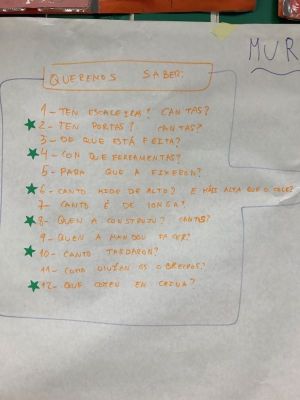 MUR
QUEREMOS SABER:
1- TEN ESCALEIRA? CANTAS?
2- TEN PORTAS? CANTAS?
3- DE QUE ESTÁ FEITA?
4- CON QUE FERRAMENTAS?
5- PARA QUE A FIXERON?
6- CANTO MIDE DE ALTO? E MÁIS ALTA QUE O COLE?
7- CANTO É DE LONGA?
8- QUEN A CONSTRUIU? CANTOS?
9- QUEN A MANDOU FACER?
10- CANTO TARDARON?
11- COMO VIVÍAN OS OBREIROS?
12- QUE COMEN EN CHINA?